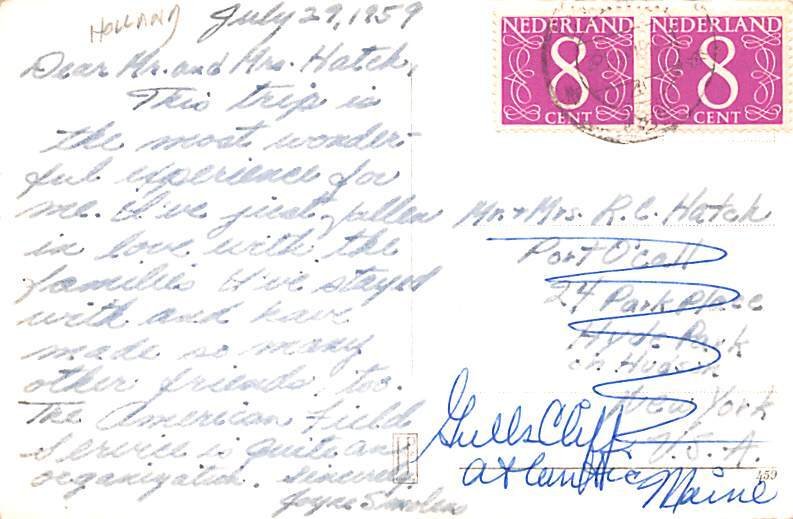 HOLLAND
July 29, 1959
Dear Mr. and Mrs. Hatch,
This trip is
the most wonder-
ful experience for
me. I've just fallen
in love with the
families I've stayed
with and have
made so many
other friends, too.
The American Field
Service is quite an
organization. Sincerely,
Joyce
NEDERLAND
8
CENT
NEDERLAND
8
CENT
Mr. + Mrs. R. C. Hatch
Port O'Call
24 Park Place
Hyde Park
on Hudson
New York
U.S.A.
Gulls Cliff
Atlantic
Maine
459